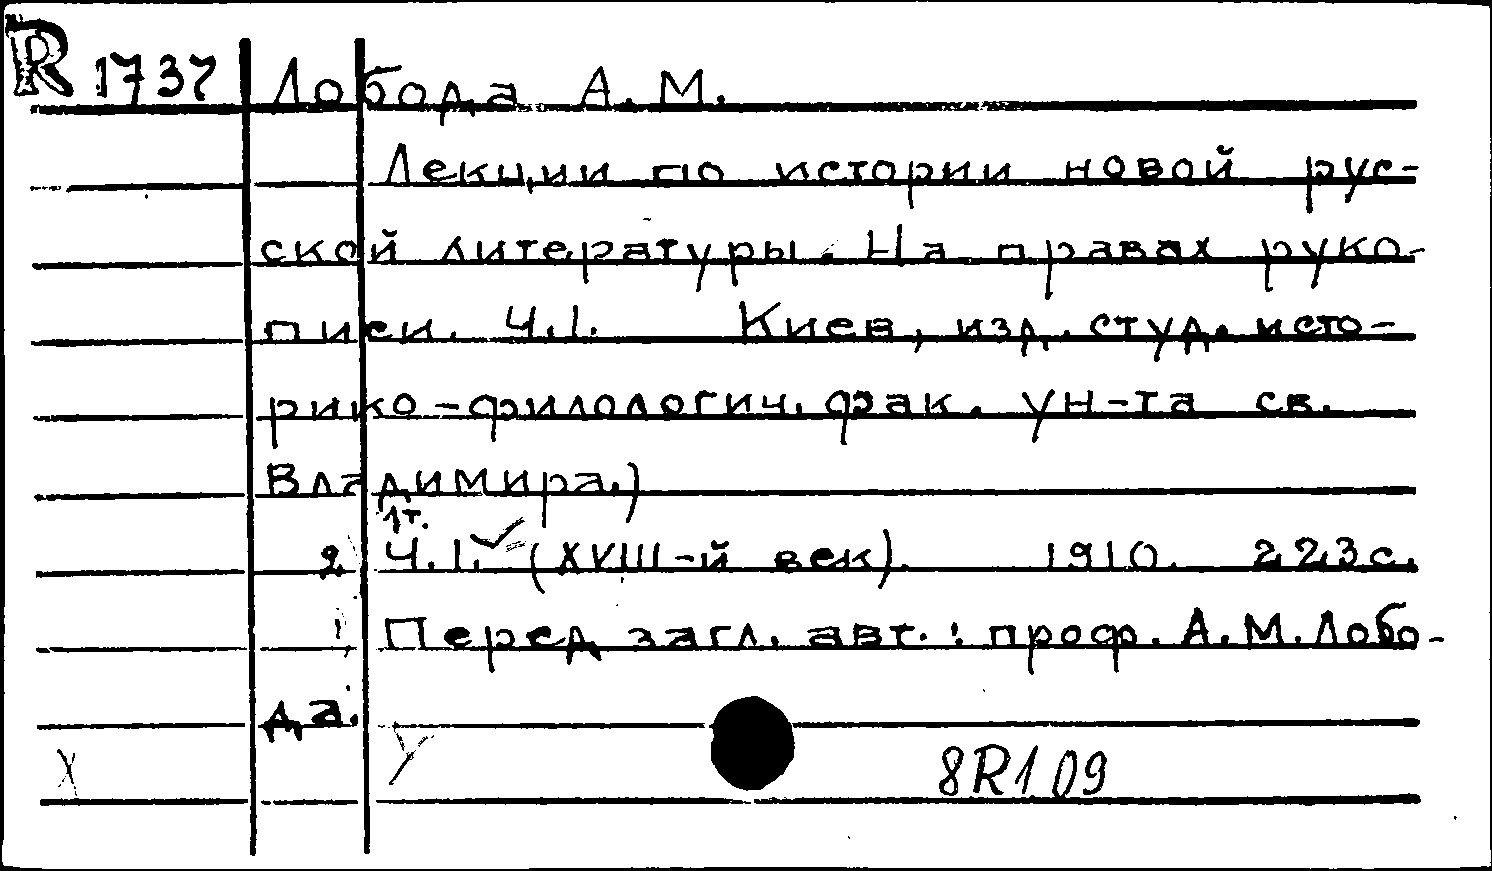 R 1737 Лобода А. М.
Лекции по истории новой рус-
ской литературы. На правах руко-
писи. Ч.I. Киев, изд. студ. исто-
рико-филологич. фак. ун-та св.
Владимира.)
1т.
2 Ч.I. (XVIII-й век). 1910. 223с.
Перед загл. авт.: проф. А.М.Лобо-
да.
X У
8R109